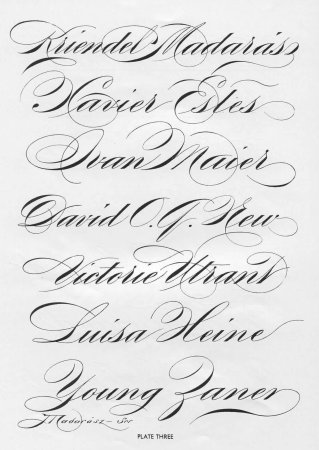 Kriendel Madarász
Xavier Estes
Ivan Maier
David O.G. Hew
Victorie Utrant
Luisa Heine
Young Zaner
Madarász
PLATE THREE